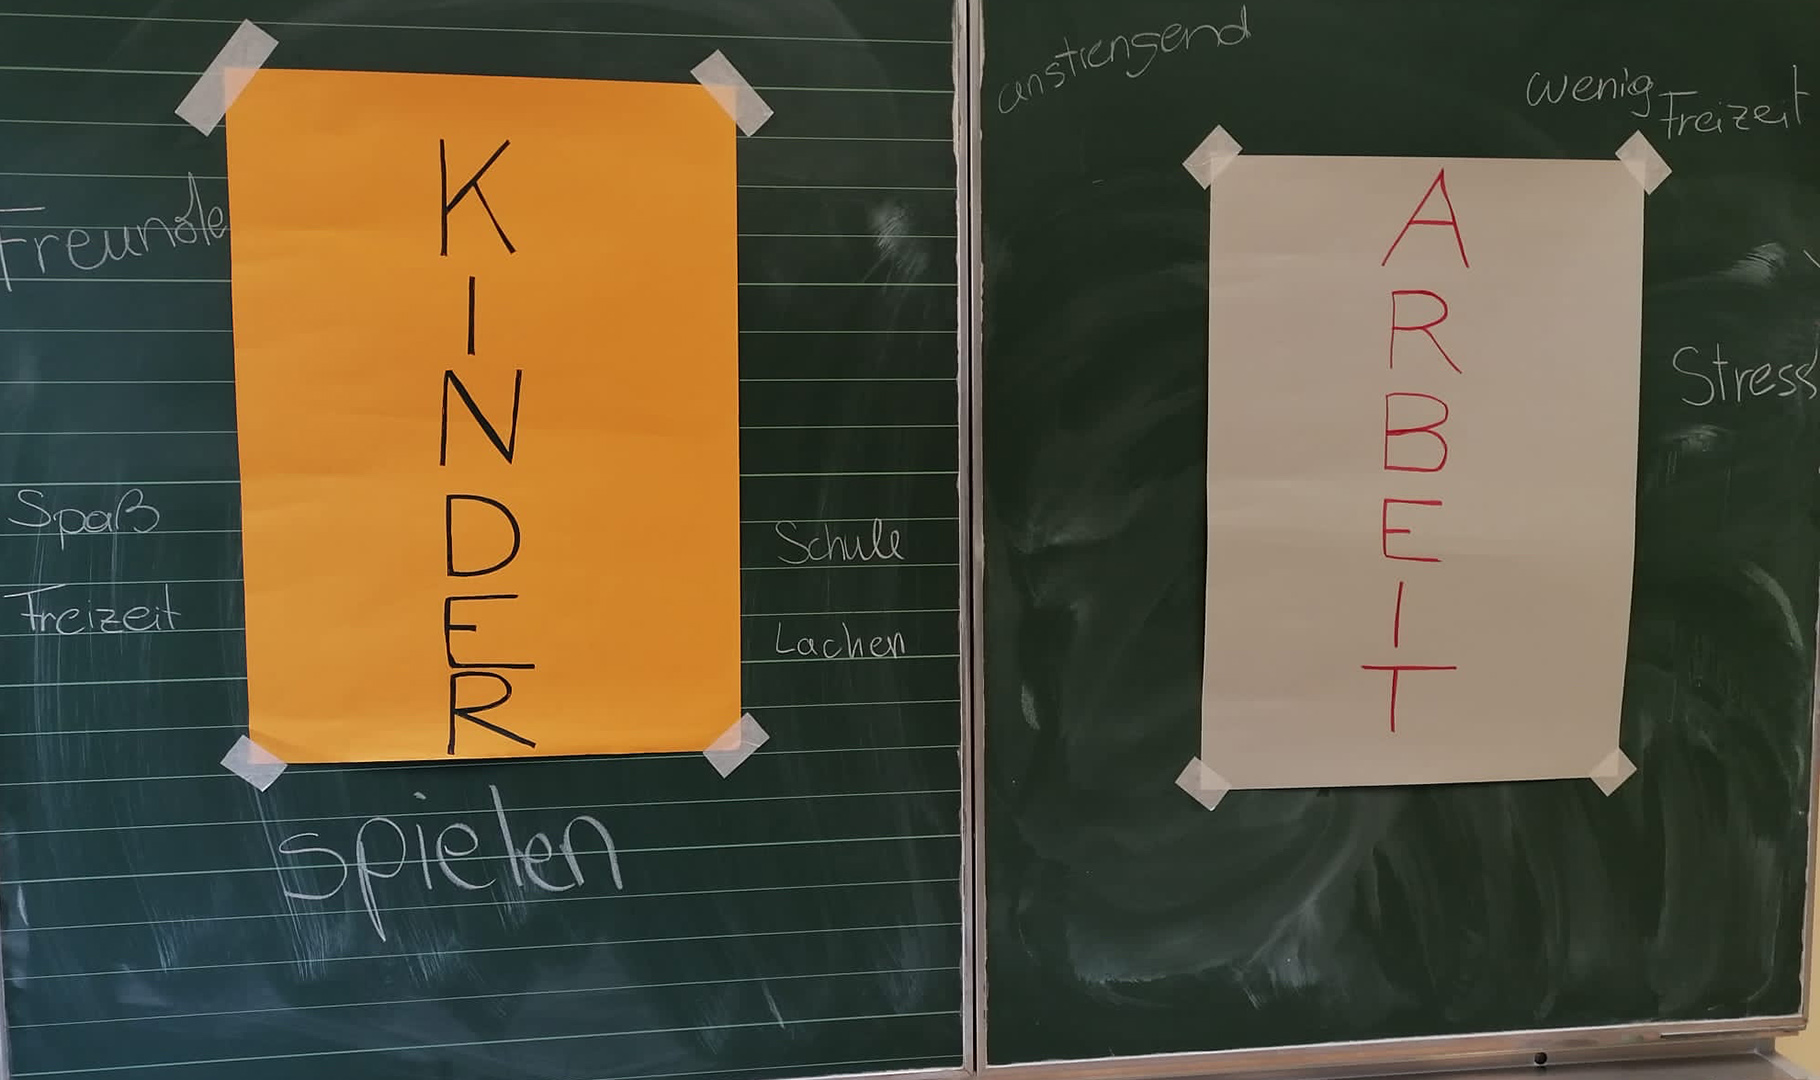 Freunde
K
I
N
D
E
R
Spaß
Freizeit
Schule
Lachen
spielen
anstrengend
wenig
Freizeit
A
R
B
E
I
T
Stress